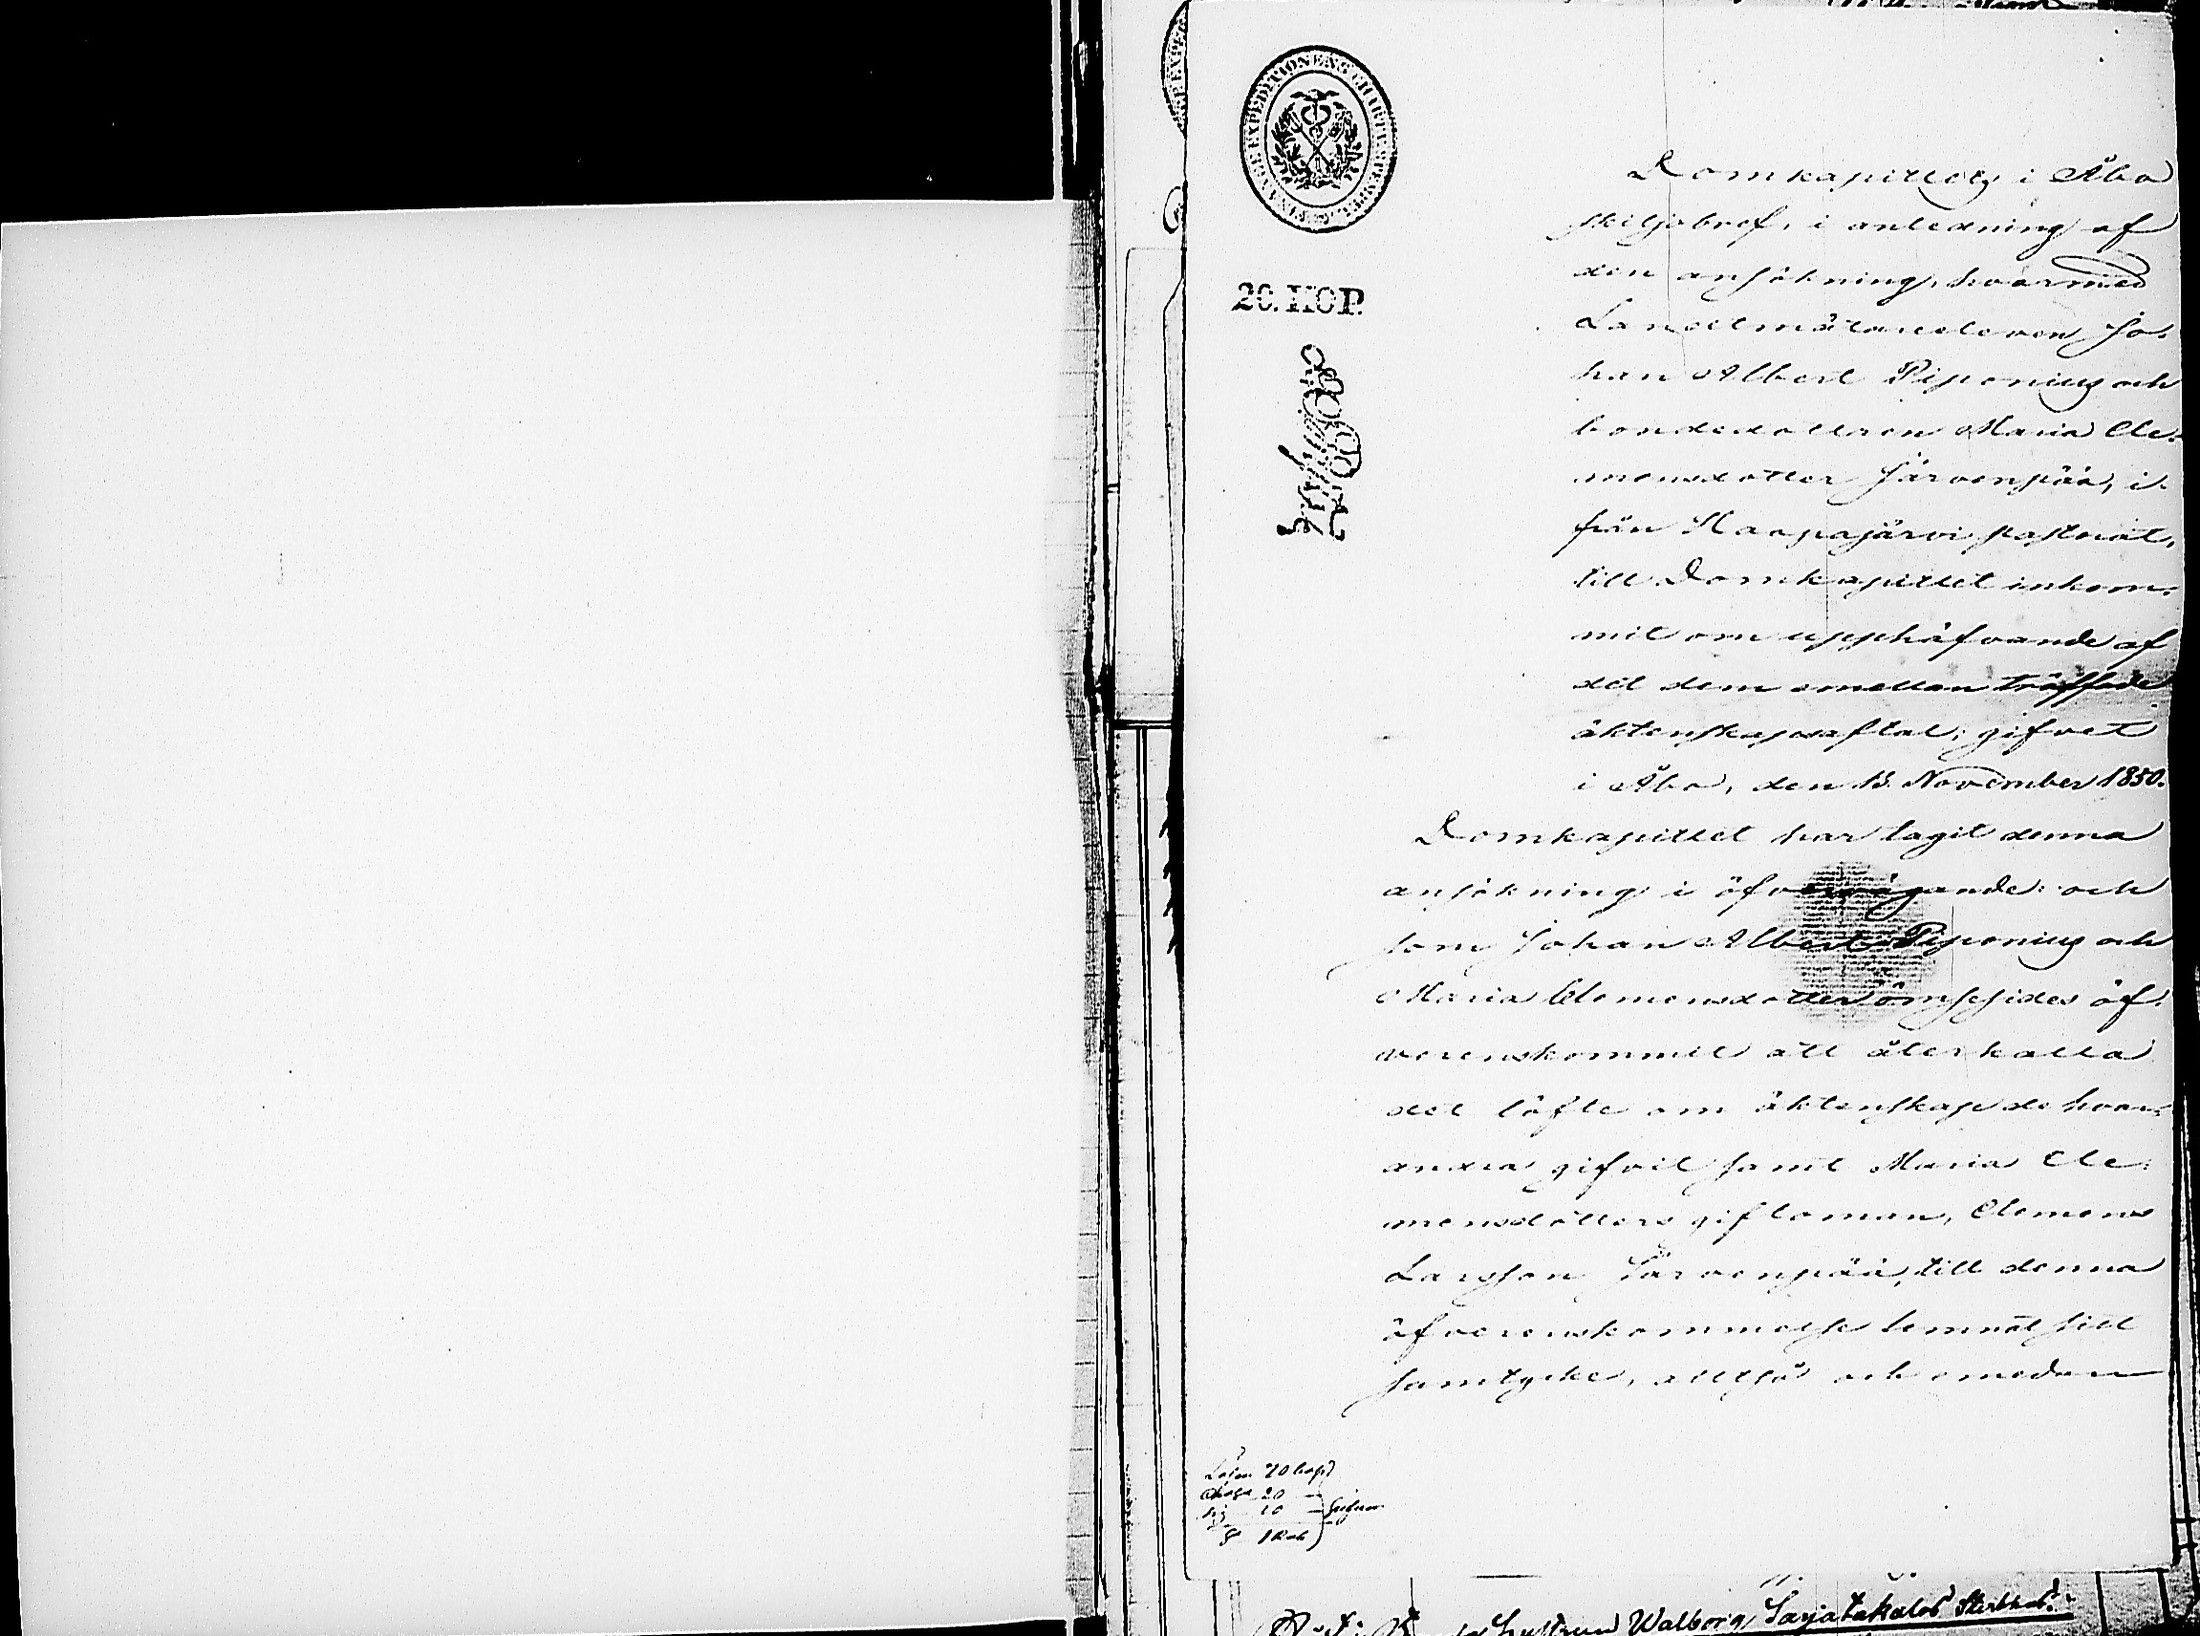 FINANCE EXPEDITIONENS CHARTÆ STEMPEL
20. KOP.
Domkapitlets i Åbo
skiljobref, i anledning af
den ansökning, hvarmed
Landtmätareeleven Jo-
han Albert Piponius och
bondedottren Maria Cle-
mensdotter Järvenpää, i-
från Haapajärvi pastorat,
till Domkapitlet inkom-
mit om upphäfvande af
det dem emellan träffade
äktenskapsaftal; gifvet
i Åbo, den 13 November 1850.
Domkapitlet har tagit denna
ansökning i öfvervägande: och
som Johan Albert Piponius och
Maria Clemensdotter ömsesides öf-
verenskommit att återkalla
det löfte om äktenskap de hvar-
andra gifvit samt Maria Cle-
mensdotters giftoman, Clemens
Larsson Järvenpää, till denna
öfverenskommelse lemnat sitt
samtycke, alltså och emedan
Lösen 70 kop
Charta 20 —
10 —
S:a 1 Rub
Hustrun Walborg Sarjatakalos Sterbhus